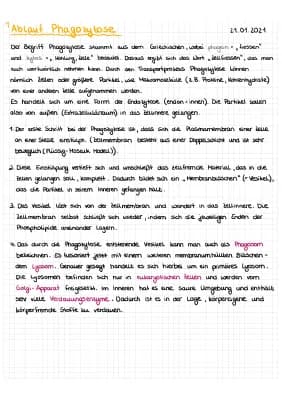 Ablauf Phagozytose 21.01.2021
Der Begriff Phagozytose stammt aus dem Griechischen, wobei phagein = „fressen"
und kytos = „Höhlung, Zelle" bedeutet. Daraus ergibt sich das Wort „Zellfressen", das man
auch wortwörtlich nehmen kann. Durch den Transportprozess Phagozytose können
nämlich Zellen oder größere Partikel, wie Makromoleküle (z.B. Proteine, Kohlenhydrate)
von einer anderen Zelle aufgenommen werden.
Es handelt sich um eine Form der Endozytose (endon = innen). Die Partikel sollen
also von außen (Extrazellulärraum) in das Zellinnere gelangen.
1. Der erste Schritt bei der Phagozytose ist, dass sich die Plasmamembran einer Zelle
an einer Stelle einstülpt. (Zellmembran besteht aus einer Doppellipidschicht und ist sehr
beweglich (Flüssig-Mosaik Modell)).
2. Diese Einstülpung vertieft sich und umschließt das zellfremde Material, das in die
Zellen gelangen soll, komplett. Dadurch bildet sich ein „Membranbläschen" (= Vesikel),
das die Partikel in seinem Inneren gefangen hält.
3. Das Vesikel löst sich von der Zellmembran und wandert in das Zellinnere. Die
Zellmembran selbst schließt sich wieder, indem sich die jeweiligen Enden der
Phospholipide aneinander lagern.
4. Das durch die Phagozytose entstehende Vesikel kann man auch als Phagosom
bezeichnen. Es fusioniert jetzt mit einem weiteren membranumhüllten Bläschen -
dem Lysosom. Genauer gesagt handelt es sich hierbei um ein primäres Lysosom.
Die Lysosomen befinden sich nur in eukaryotischen Zellen und werden vom
Golgi-Apparat freigesetzt. Im Inneren hat es eine saure Umgebung und enthält
sehr viele Verdauungsenzyme. Dadurch ist es in der Lage, körpereigene und
körperfremde Stoffe zu verdauen.